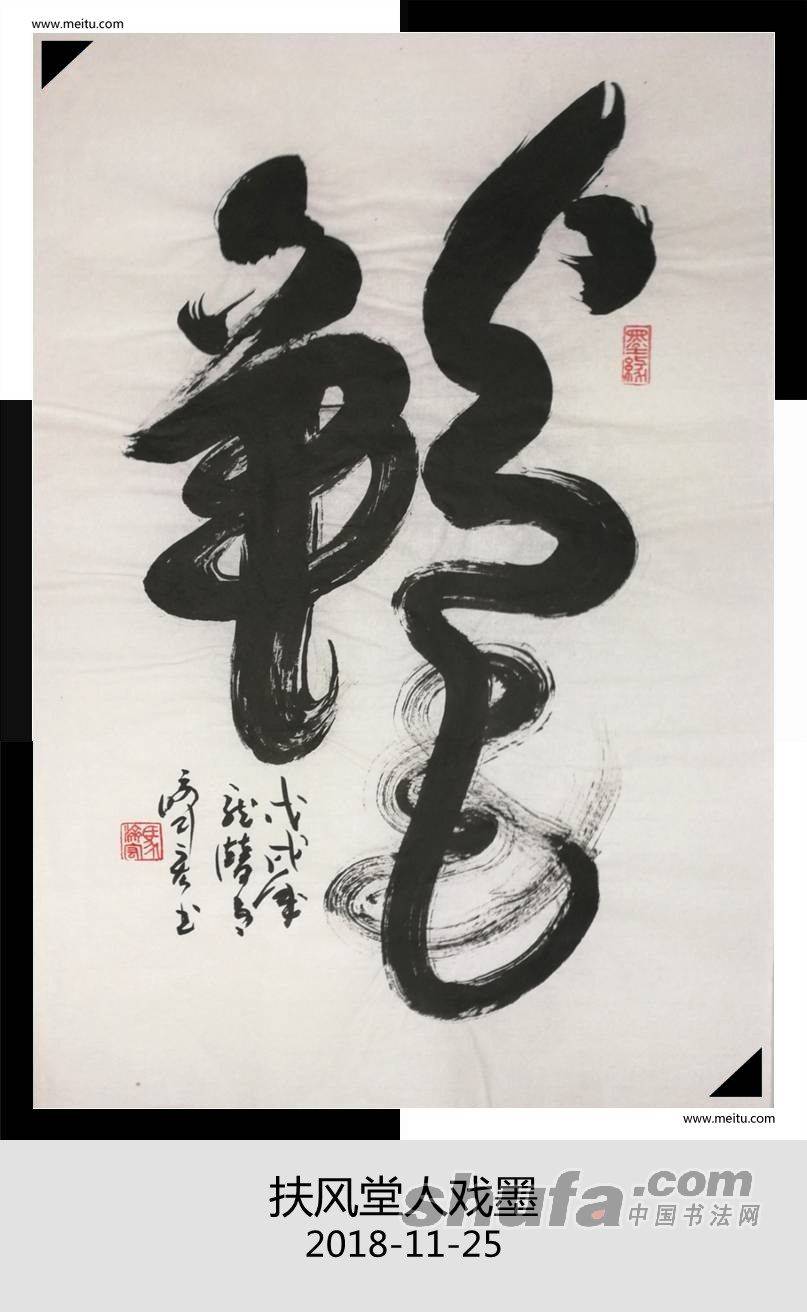 www.meitu.com
龍
墨缘
戊戌年
龙
书
www.meitu.com
扶风堂人戏墨
shufa.com
中国书法网
2018-11-25